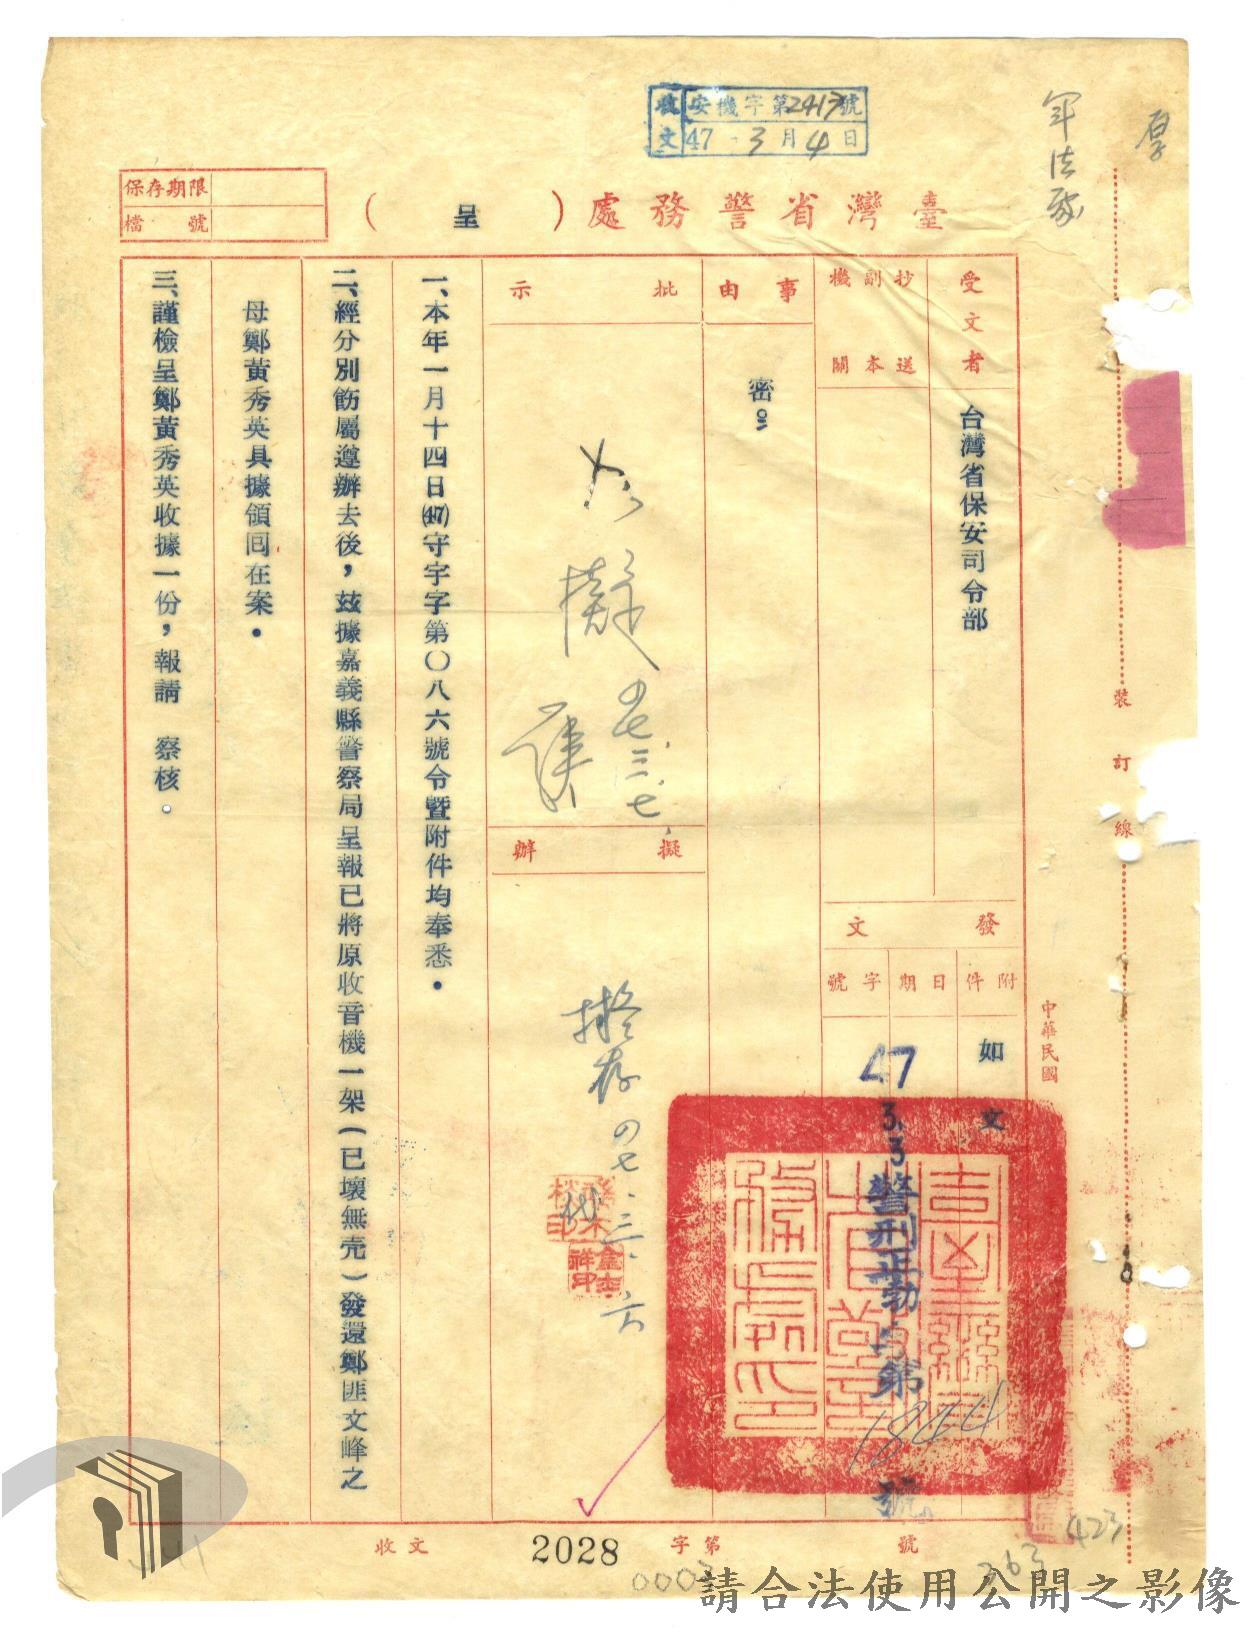 收文 安機字第2413號
47-3月4日
軍法處
保存期限
檔號
臺灣省警務處(呈)
受文者
台灣省保安司令部
抄副機
送本關
發文
附件
如文
日期
字號
47 3.3 警刑正勃字第1844號
事由
密。
批示
如擬
四七、三、七
擬辦
擬存 四七、三、六
一、本年一月十四日(47)守宇字第〇八六號令暨附件均奉悉。
二、經分別飭屬遵辦去後,茲據嘉義縣警察局呈報已將原收音機一架(已壞無壳)發還鄭匪文峰之
母鄭黃秀英具據領囘在案。
三、謹檢呈鄭黃秀英收據一份,報請 察核。
中華民國
裝訂線
收文 2028 字第 號
423
363
請合法使用公開之影像